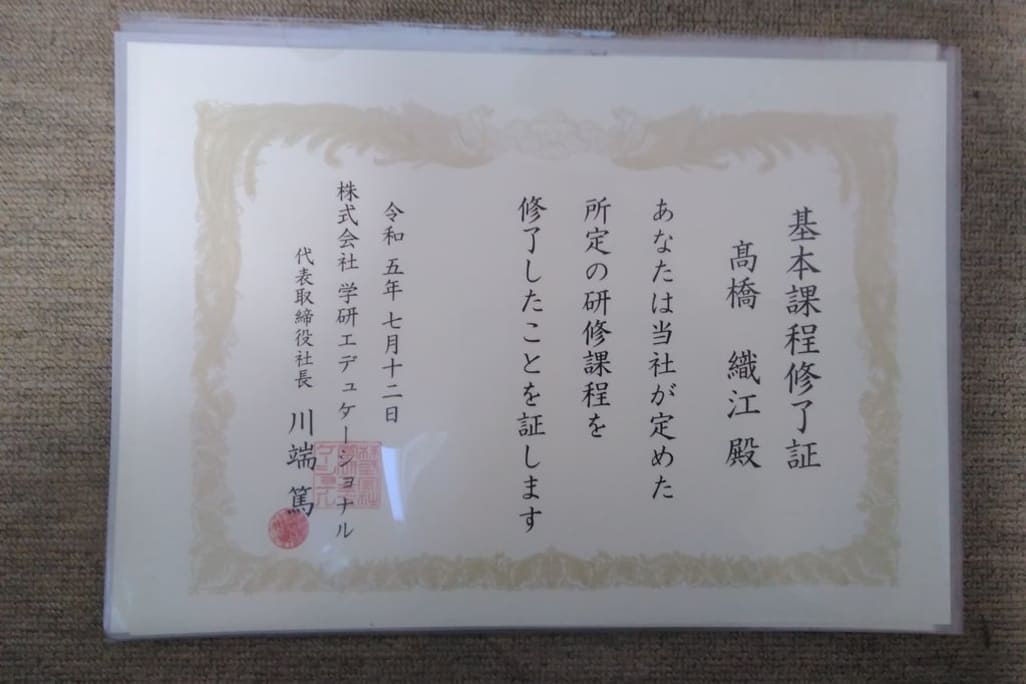 基本課程修了証
髙橋 織江 殿
あなたは当社が定めた
所定の研修課程を
修了したことを証します
令和 五年 七月十二日
株式会社 学研エデュケーショナル
代表取締役社長 川端 篤